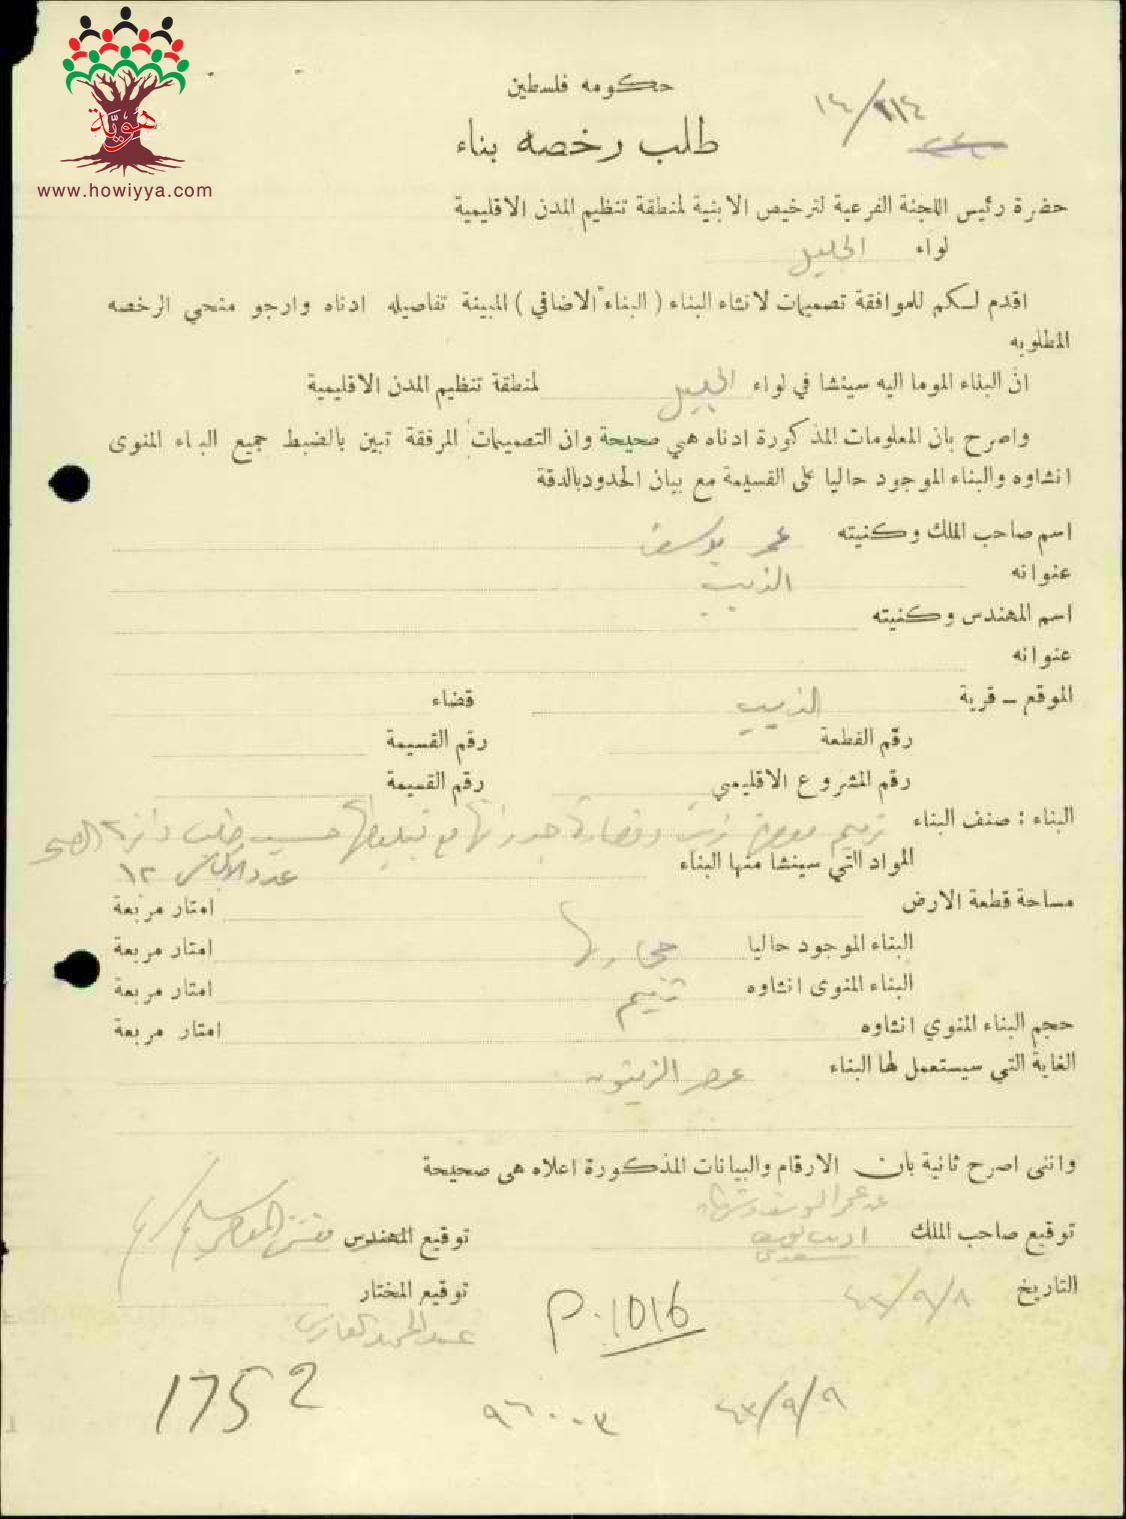 هوية
www.howiyya.com
حكومه فلسطين
١٤/٢١٤
طلب رخصه بناء
حضرة رئيس اللجنة الفرعية لترخيص الابنية لمنطقة تنظيم المدن الاقليمية
لواء الجليل
اقدم لكم للموافقة تصميمات لانشاء البناء ( البناء الاضافي ) المبينة تفاصيله ادناه وارجو منحي الرخصه
المطلوبه
ان البناء الموما اليه سينشا في لواء الجليل لمنطقة تنظيم المدن الاقليمية
واصرح بان المعلومات المذكورة ادناه هي صحيحة وان التصميمات المرفقة تبين بالضبط جميع البناء المنوى
انشاوه والبناء الموجود حاليا على القسيمة مع بيان الحدود بالدقة
اسم صاحب الملك وكنيته عمر يوسف
عنوانه الزيب
اسم المهندس وكنيته
عنوانه
الموقع – قرية الزيب قضاء
رقم القطعة رقم القسيمة
رقم المشروع الاقليمي رقم القسيمة
البناء : صنف البناء ترميم معصرة زيت وقصارة جدرانها مع تبليطها حسب طلب دائرة الصحة
المواد التي سينشا منها البناء عدد الاكياس ١٢
مساحة قطعة الارض امتار مربعة
البناء الموجود حاليا امتار مربعة
البناء المنوى انشاوه ترميم امتار مربعة
حجم البناء المنوي انشاوه امتار مربعة
الغاية التي سيستعمل لها البناء عصر الزيتون
وانني اصرح ثانية بان الارقام والبيانات المذكورة اعلاه هي صحيحة
عن عمر اليوسف
توقيع صاحب الملك اديب يوسف توقيع المهندس مفتش المعاصر
التاريخ ٤٣/٩/٨ توقيع المختار
P.1016
عبد الحميد
1752
٩٦٠٠٣
٤٣/٩/٩